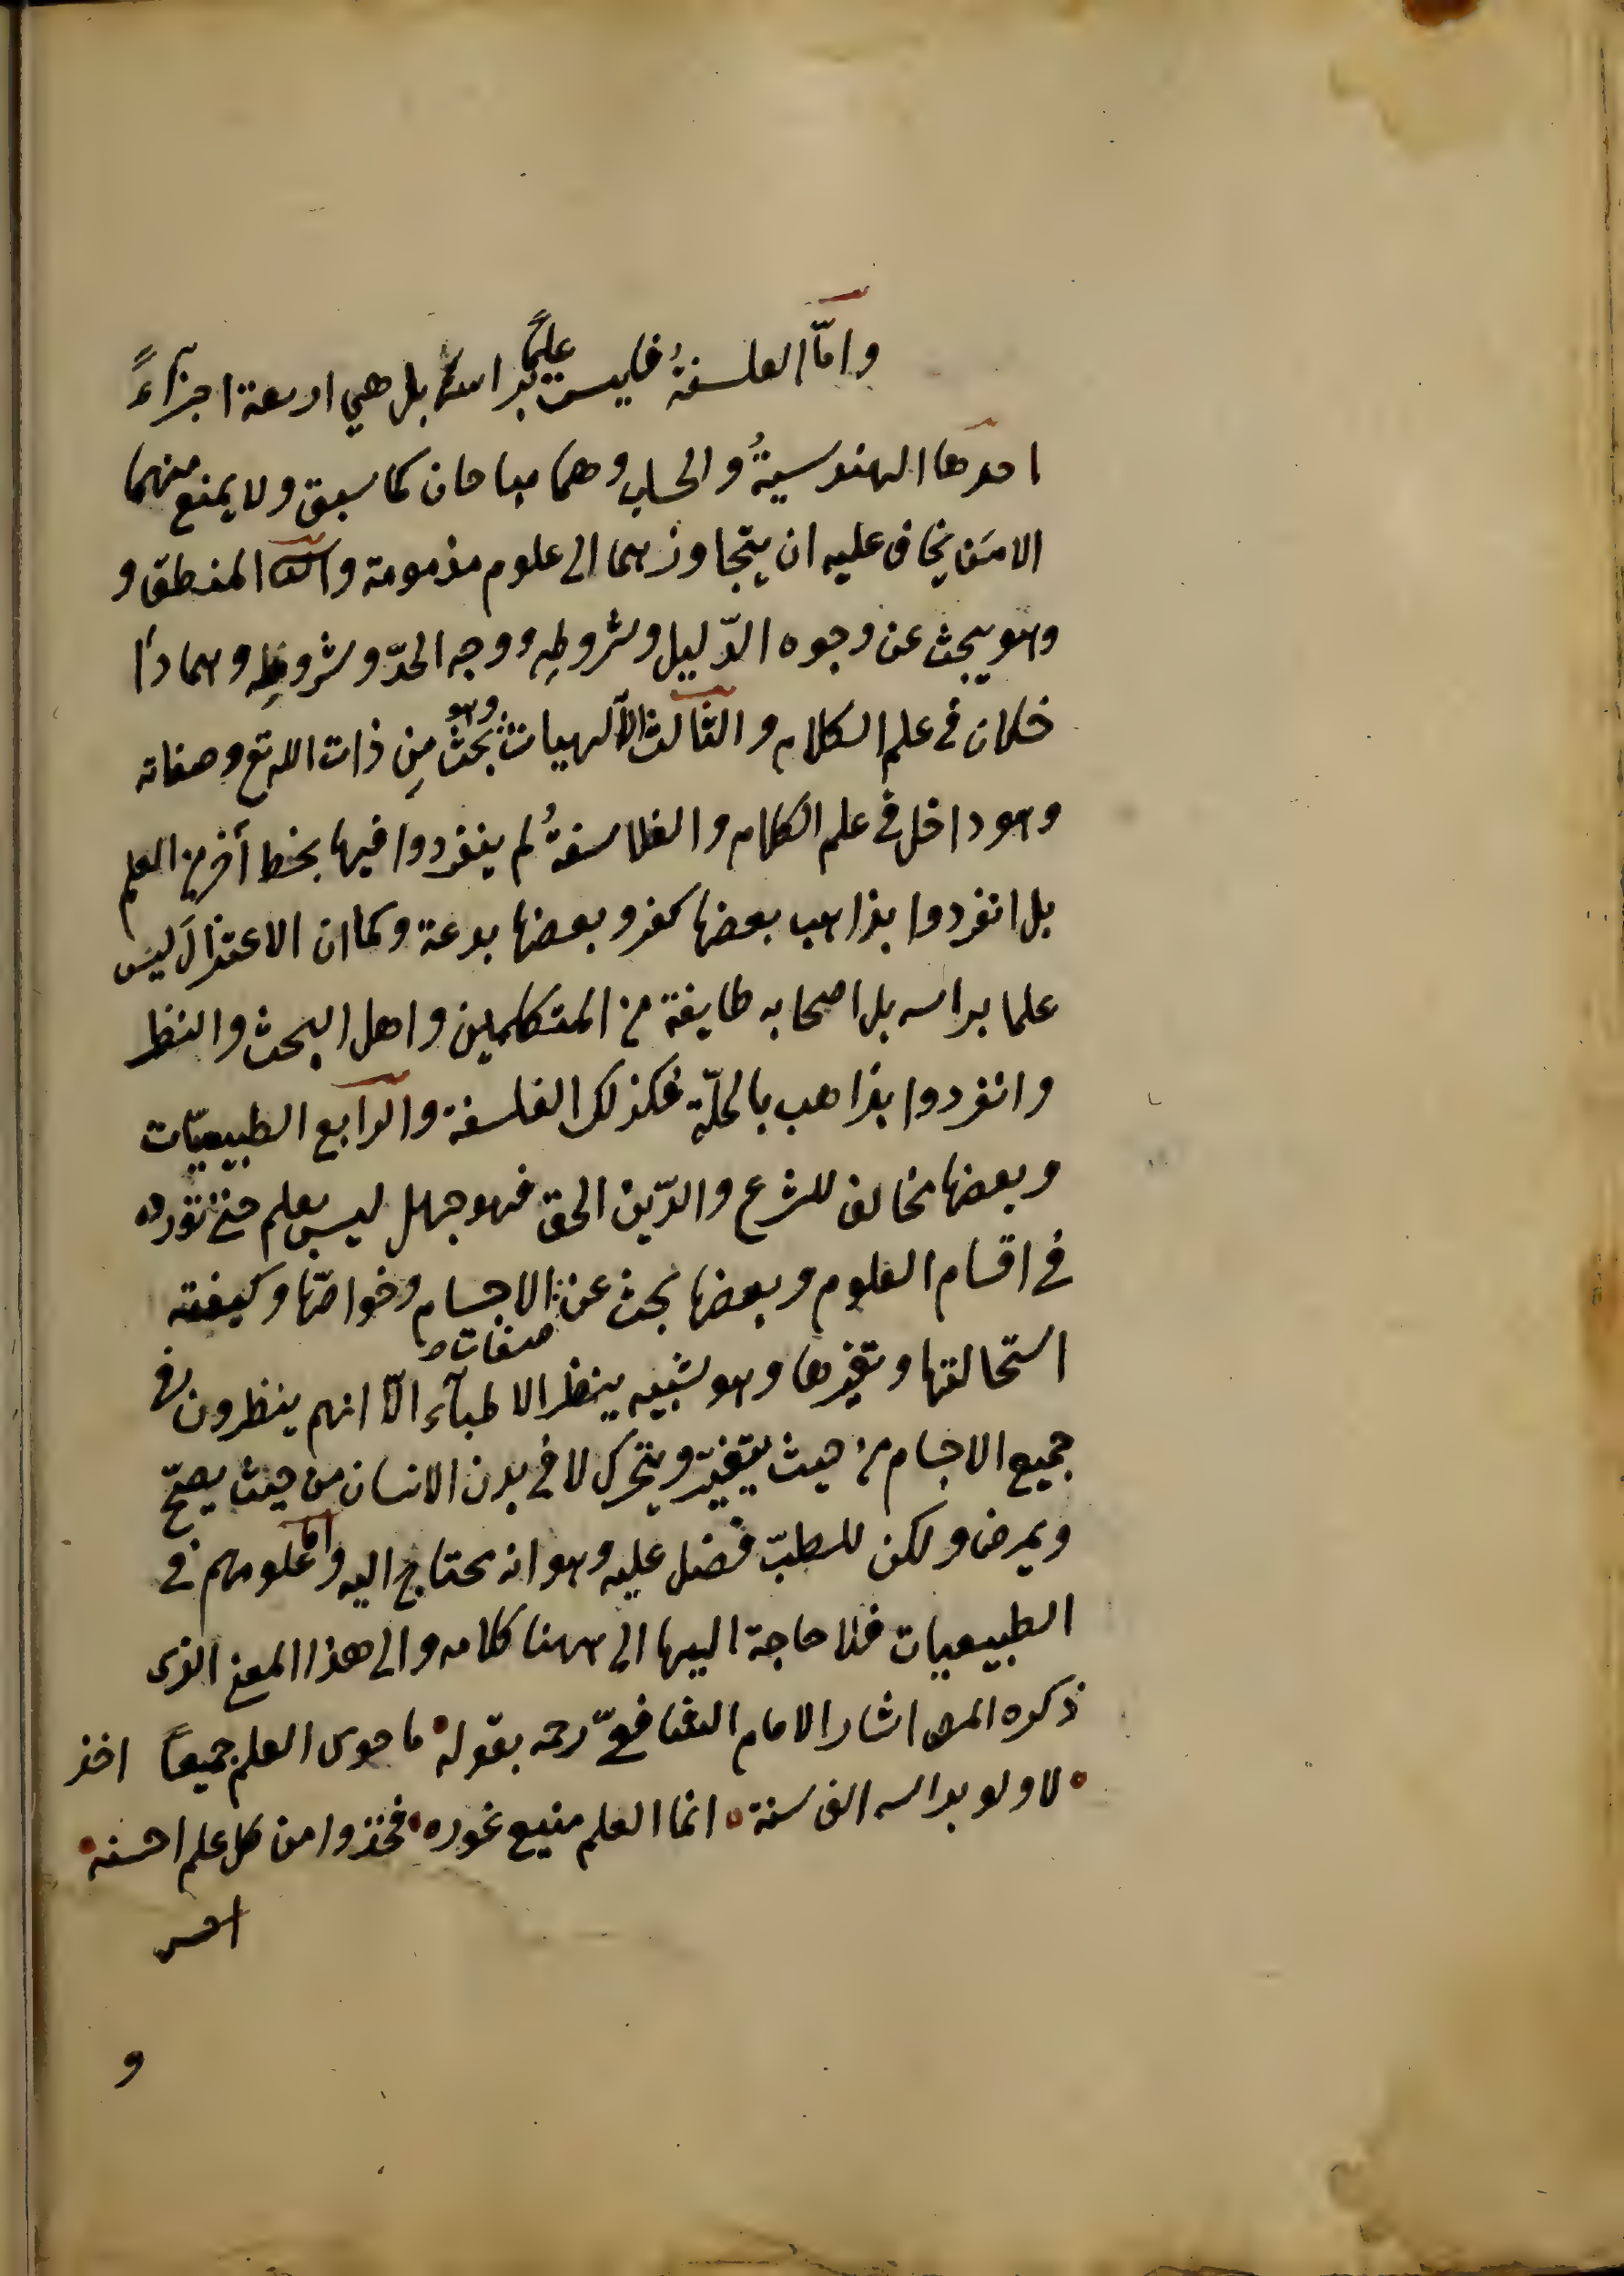 وامّا الفلسفةُ فليست علمًا براسها بل هي اربعة اجزآءً
احدها الهندسيةُ والحساب وهما مباحان كما سبق ولا يمنع منهما
الا مَن يخاف عليه ان يتجاوزهما الى علوم مذمومة والثانى المنطق و
وهو يبحث عن وجوه الدّليل وشروطِهِ ووجه الحدّ وشروطِهِ وهما دا
خلان في علم الكلام والثالث الآلهيات وهو بحثٌ مِن ذات الله تع وصفاته
وهو داخل في علم الكلام والفلاسفةُ لم ينفردوا فيها بخط أخر من العلم
بل انفردوا بمذاهب بعضها كفر وبعضها بدعة وكما ان الاعتزالَ ليس
علما براسه بل اصحابه طايفة من المتكلمين واهل البحث والنظر
وانفردوا بمذاهب بالحلّة فكذلك الفلسفة والرابع الطبيعيّات
وبعضها مخالف للشرع والدّين الحق فهو جهل ليس بعلم حتى نورده
في اقسام العلوم وبعضها بحث عن صفات الاجسام وخواصّها وكيفته
استحالتها وتغيرها وهو شبيه بنظر الاطبآء الّا انهم ينظرون في
جميع الاجسام من حيث يتغيّر ويتحرك لا في بدن الانسان من حيث يصحّ
ويمرض ولكن للطبّ فضل عليه وهو انه يحتاج اليه واما علومهم في
الطبيعيات فلا حاجة اليها الى ههنا كلامه والى هذا المعنى الذى
ذكره المص اشار الامام الشافعىّ رحمه بقوله ما حوى العلم جميعاً اخذ
لا ولو بداسه الف سنة انما العلم منيع غوره فخذوا من كل علم احسنه
و